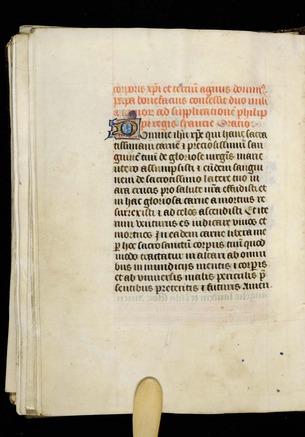 corporis xpi et tercium agnus domini.
Papa bonefacius concessit duo mili
a annor ad supplicationem philip
pi regis francie Oratio.
Domine ihu xpe qui hanc sacra
tissimam carnem i preciosissimum san
guinem tuum de gloriose uirginis marie
utero assumpsisti i eundem sangui
nem de sacratissimo latere tuo in
ara crucis pro salute nra effudisti et
in hac gloriosa carne a mortuis re
surrexisti i ad celos ascendisti Et ite
rum uenturus es iudicare uiuos et
mortuos In eadem carne libera me
per hoc sacrosanctum corpus tuum quod
modo tractatur in altari ab omni
bus in mundiciis mentis i corpis
et ab uniuersis malis periculis p
sentibus preteritis i futuris Amen